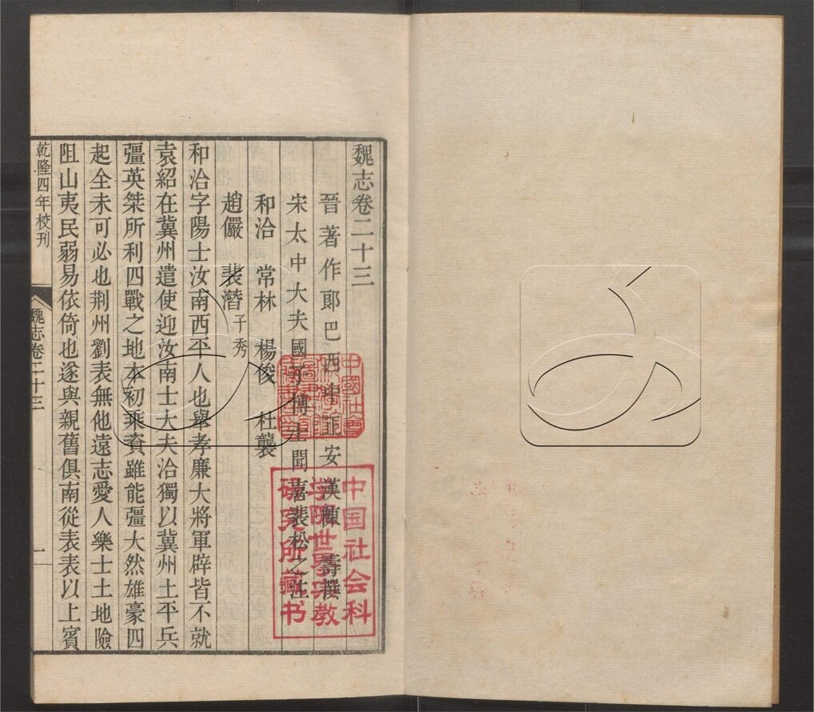 魏志卷二十三
晉著作郎巴西中正安漢陳壽撰
宋太中大夫國子博士聞喜裴松之注
和洽 常林 楊俊 杜襲
趙儼 裴潛子秀
和洽字陽士汝南西平人也舉孝廉大將軍辟皆不就
袁紹在冀州遣使迎汝南士大夫洽獨以冀州土平兵
彊英桀所利四戰之地本初乘資雖能彊大然雄豪四
起全未可必也荆州劉表無他遠志愛人樂士土地險
阻山夷民弱易依倚也遂與親舊俱南從表表以上賓
乾隆四年校刊
魏志卷二十三
一
中国社会科
学院世界宗教
研究所藏书